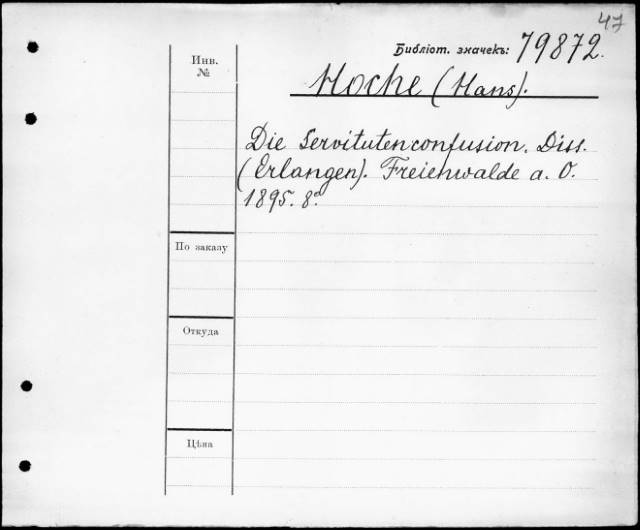 47
Библіот. значекъ: 79872.
Инв.
№
Hoche (Hans).
Die Servitutenconfusion. Diss.
(Erlangen). Freienwalde a. O.
1895. 8º
По заказу
Откуда
Цѣна